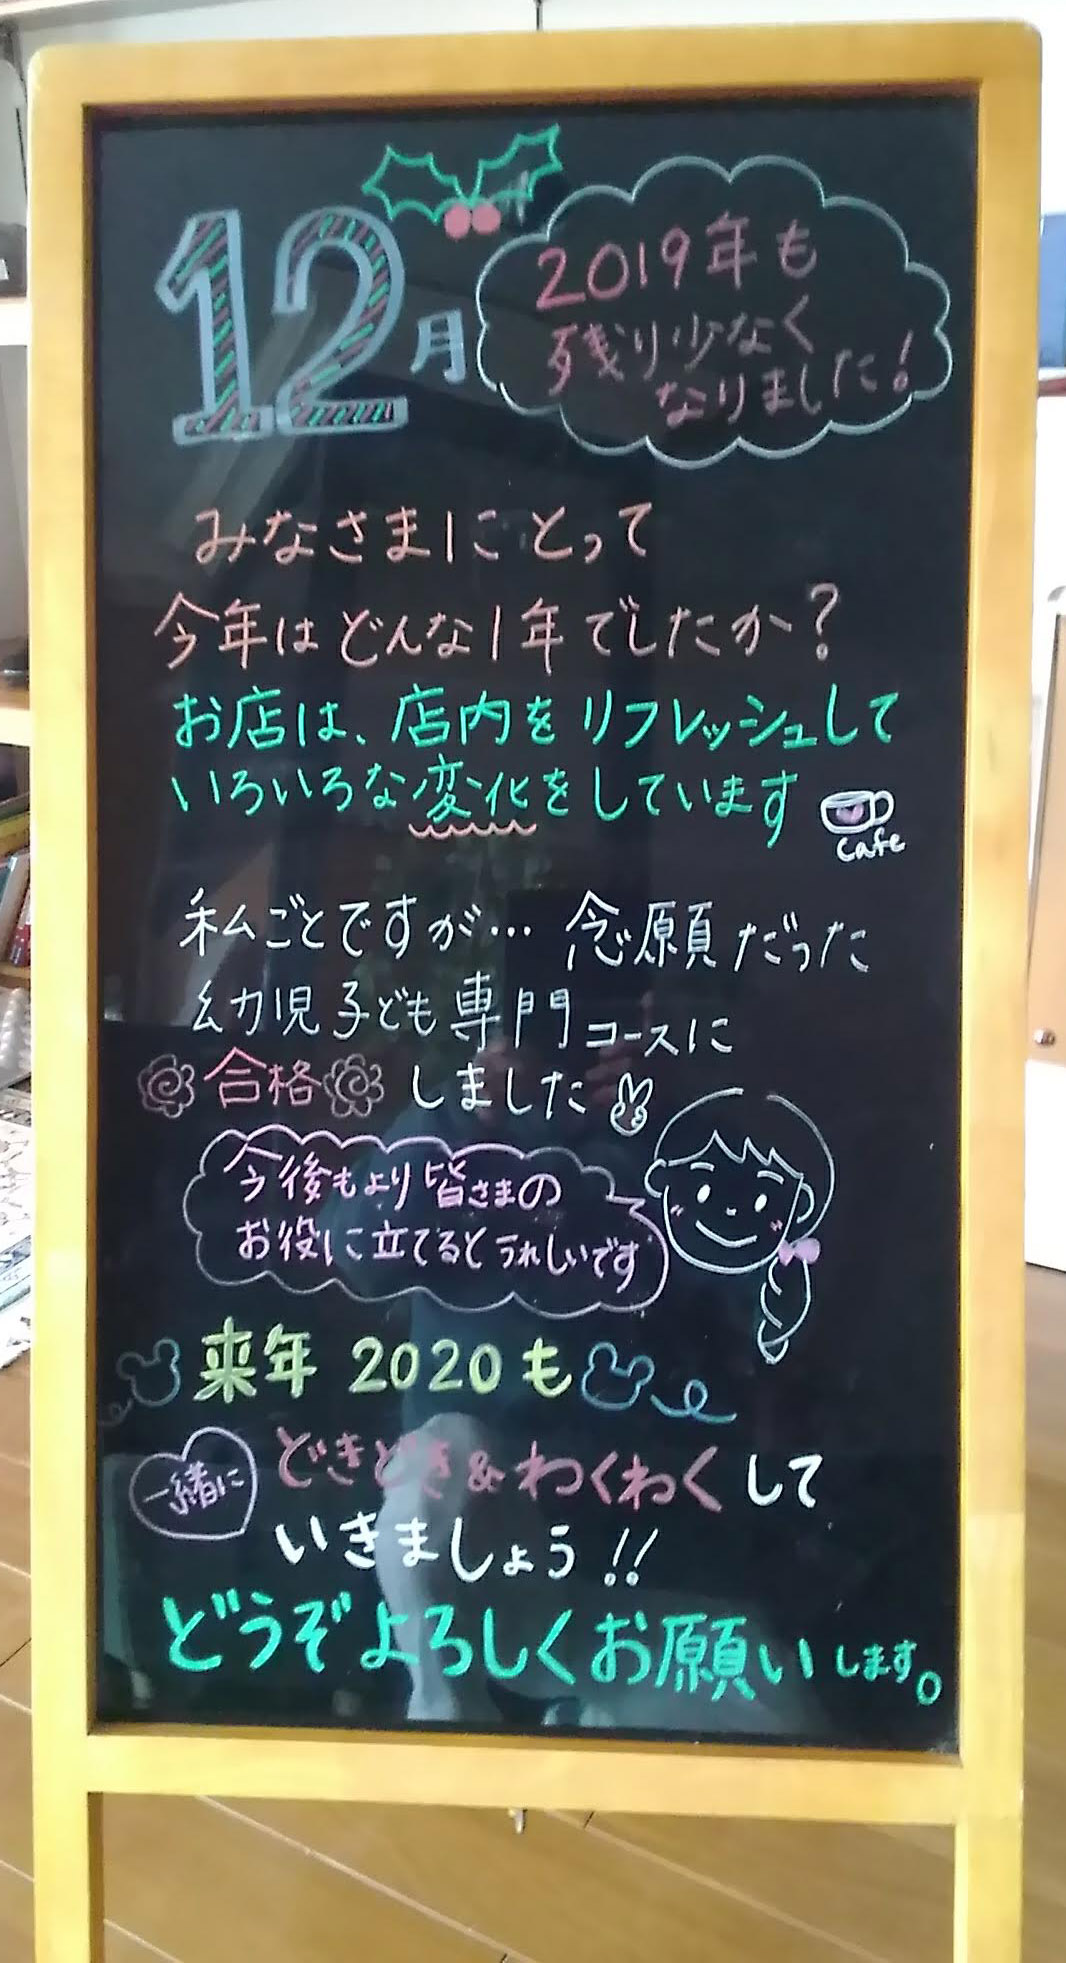 12月
2019年も
残り少なく
なりました！
みなさまにとって
今年はどんな1年でしたか？
お店は、店内をリフレッシュして
いろいろな変化をしています
cafe
私ごとですが… 念願だった
幼児子ども専門コースに
合格しました
今後もより皆さまの
お役に立てるとうれしいです
来年 2020も
一緒に
どきどき&わくわくして
いきましょう!!
どうぞよろしくお願いします。